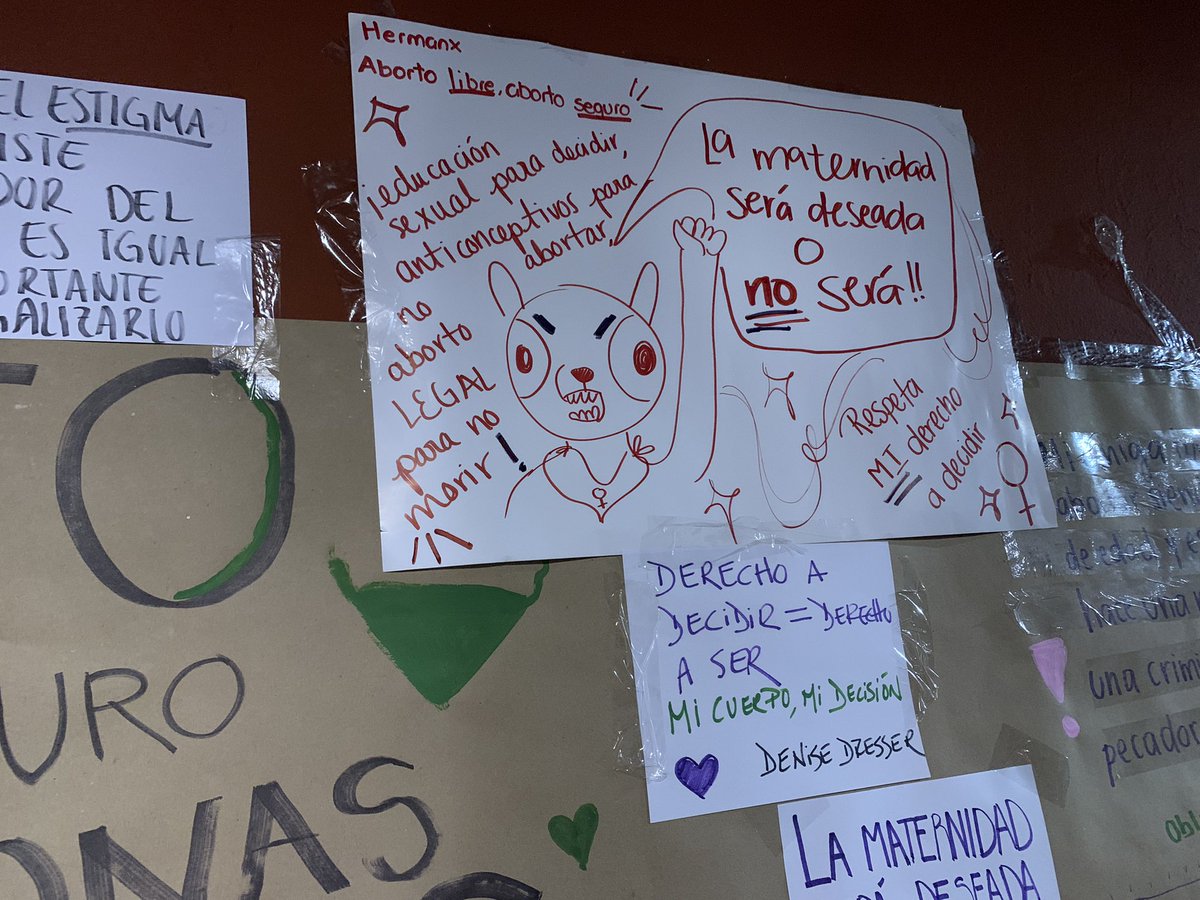 EL ESTIGMA
DEL
ES IGUAL
Hermanx
Aborto libre, aborto seguro
¡educación
sexual para decidir,
anticonceptivos para
no abortar,
aborto
LEGAL
para no
morir!
La maternidad
será deseada
O
no será!!
Respeta
MI derecho
a decidir
DERECHO A
DECIDIR = DERECHO
A SER
MI CUERPO, MI DECISIÓN
DENISE DRESSER
LA MATERNIDAD
DESEADA
TO
URO
ONAS
hace una
una crimi
pecador